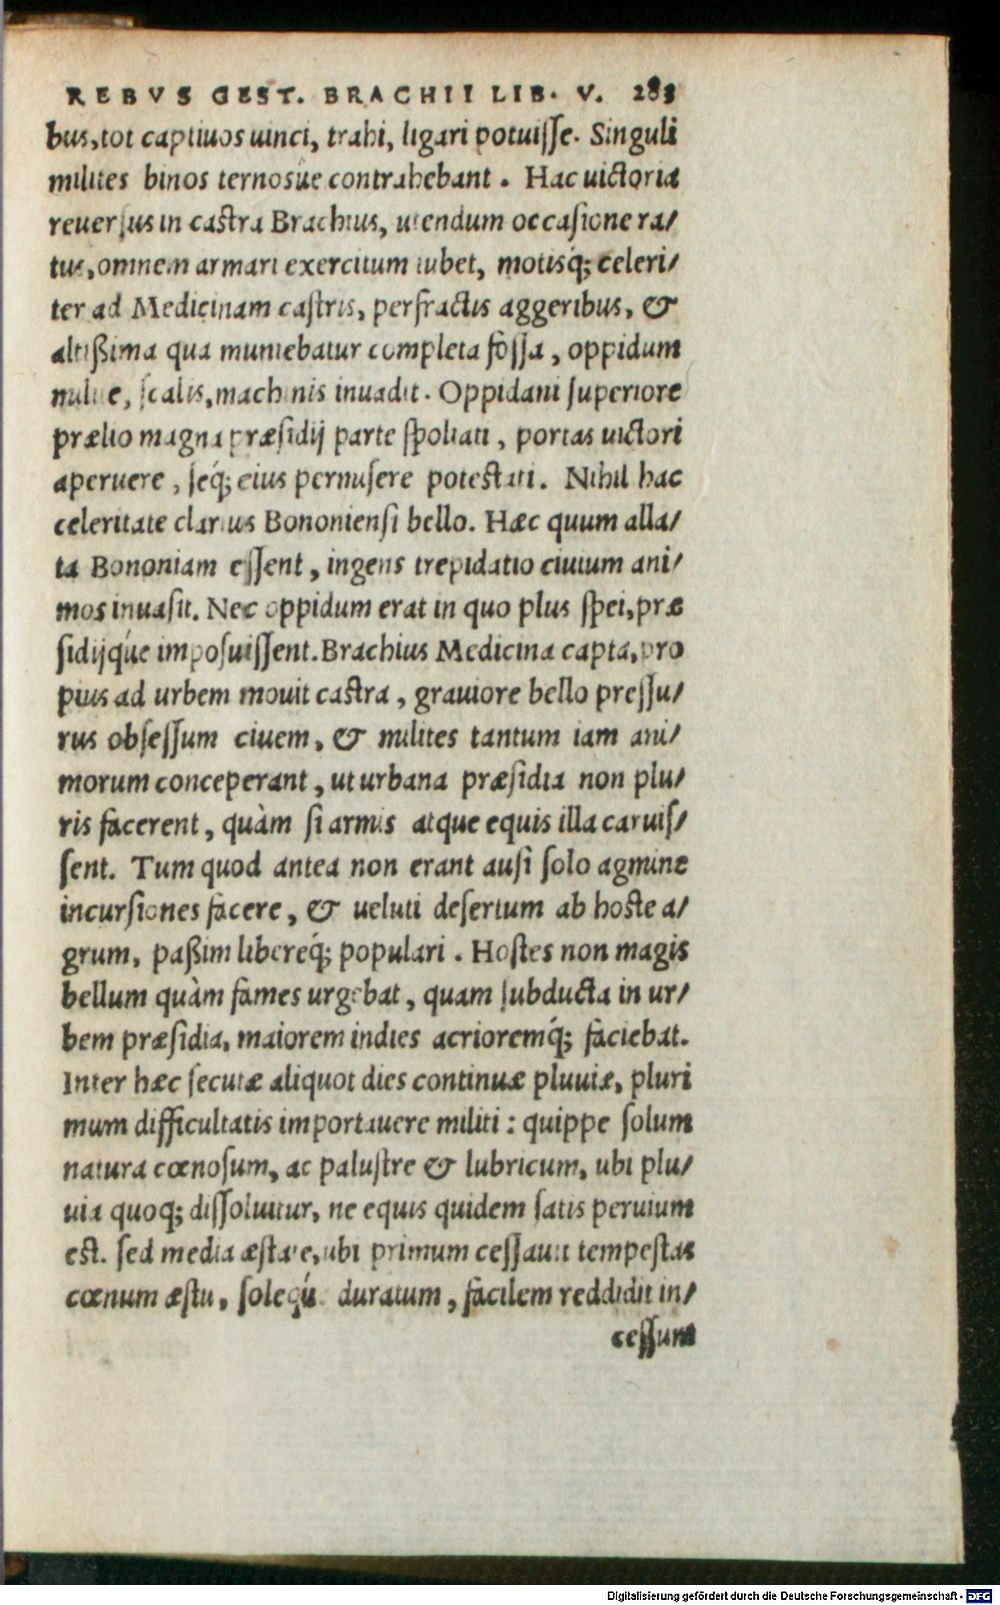 REBVS GEST. BRACHII LIB. V. 283
bus, tot captiuos uinci, trahi, ligari potuisse. Singuli
milites binos ternosúe contrahebant. Hac uictoria
reuersus in castra Brachius, utendum occasione ra/
tus, omnem armari exercitum iubet, motisq́; celeri/
ter ad Medicinam castris, perfractis aggeribus, &
altißima qua muniebatur completa fossa, oppidum
milite, scalis, machinis inuadit. Oppidani superiore
prælio magna præsidij parte spoliati, portas uictori
aperuere, seq́; eius permisere potestati. Nihil hac
celeritate clarius Bononiensi bello. Hæc quum alla/
ta Bononiam essent, ingens trepidatio ciuium ani/
mos inuasit. Nec oppidum erat in quo plus spei, præ
sidijqúe imposuissent. Brachius Medicina capta, pro
pius ad urbem mouit castra, grauiore bello pressu/
rus obsessum ciuem, & milites tantum iam ani/
morum conceperant, ut urbana præsidia non plu/
ris facerent, quàm si armis atque equis illa caruis/
sent. Tum quod antea non erant ausi solo agmine
incursiones facere, & ueluti desertum ab hoste a/
grum, paßim libereq́; populari. Hostes non magis
bellum quàm fames urgebat, quam subducta in ur/
bem præsidia, maiorem indies acrioremq́; faciebat.
Inter hæc secutæ aliquot dies continuæ pluuiæ, pluri
mum difficultatis importauere militi: quippe solum
natura cœnosum, ac palustre & lubricum, ubi plu/
uia quoq; dissoluitur, ne equis quidem satis peruium
est. sed media æstate, ubi primum cessauit tempestas
cœnum æstu, soleqú duratum, facilem reddidit in/
cessum
Digitalisierung gefördert durch die Deutsche Forschungsgemeinschaft - DFG